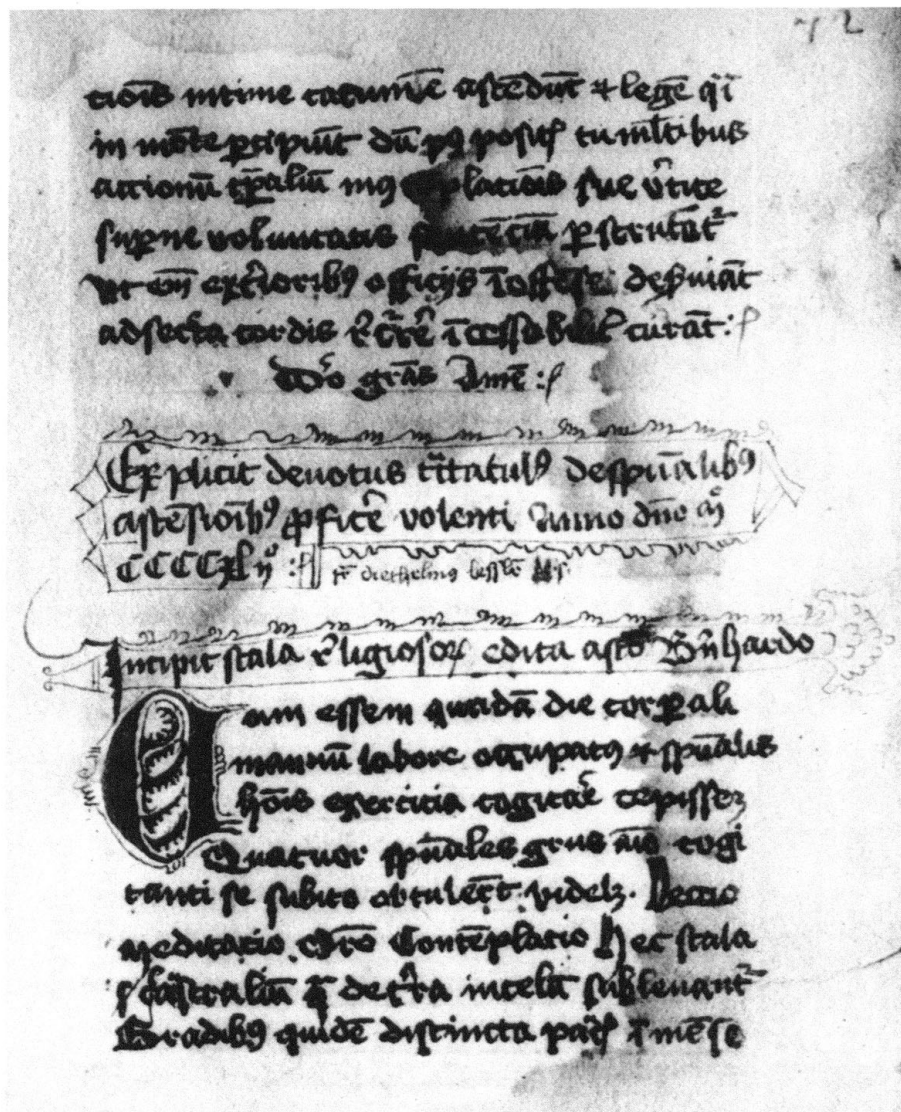 72
cōis intime cacumīe ascēdūt ⁊ legē q̄i
in mōte ꝑcipiūt dū pꝰ posit tumltibus
actionū tꝑaliū platiōis sue v̄tice
suꝑne voluntatis sentētiā ꝑscrutāt᷑
vt exterioribꝰ officijs īoffēse deꝑuiāt
ad sec̄ta cordis īcessabilit̄ curāt :
dō grās Amē :
Explicit deuotus t̄ctatulꝰ de spūalibꝰ
ascēsionibꝰ ꝓficē volenti Anno dn̄o mͦ
CCCCxlijͦ :
fr̄ diethelmꝰ
Incipit scala r̄ligiosoꝝ edita a sctō Bn̄hardo
Cum essem quadā die corꝑali
manuū labore occupatꝰ ⁊ spūalis
hōis exercitia cogitāe cepissē
Quatuor spūales grꝰ aīo cogi
tanti se subito obtulert̄ videlꝫ. Lectio
meditatio Orō Contēplacio Hec scala
ē claustraliū q̄ de t̄ra in celū subleuant᷑
Gradibꝰ quidē distincta paucꝭ īmēse